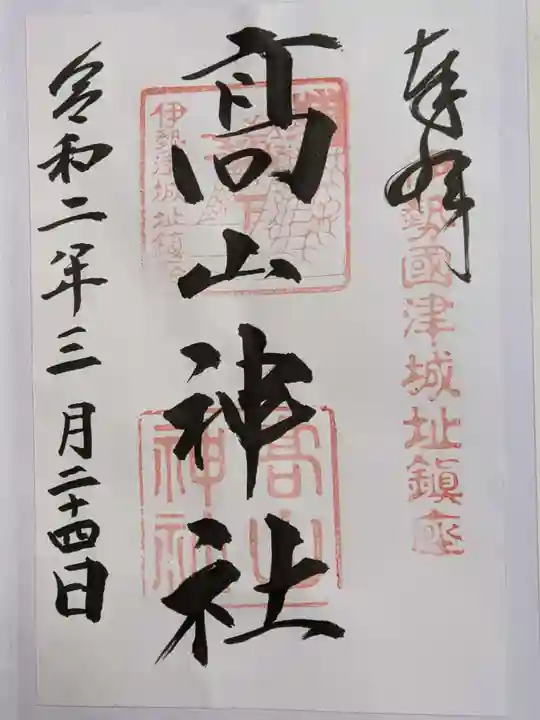 奉拝
勢國津城址鎮座
髙山神社
伊勢津城址鎮座
高山
神社
令和二年三月二十四日